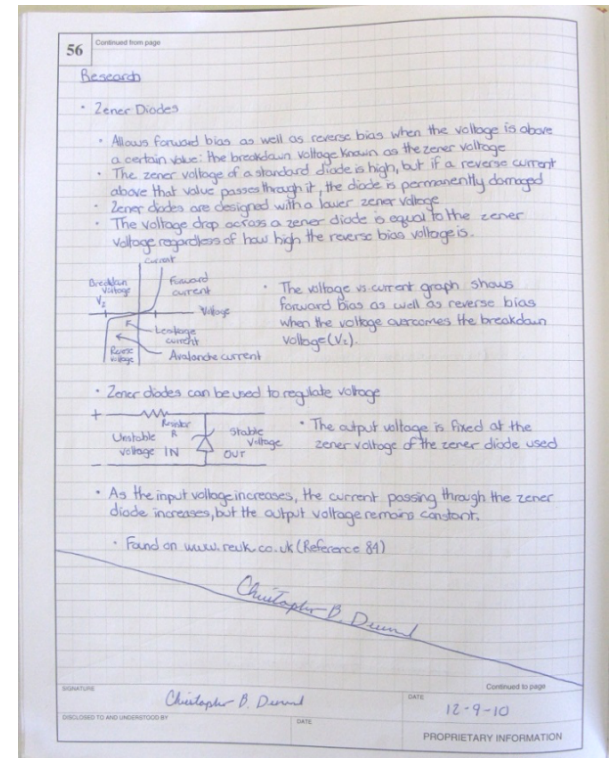 56
Continued from page
Research
• Zener Diodes
• Allows forward bias as well as reverse bias when the voltage is above
a certain value: the breakdown voltage known as the zener voltage
• The zener voltage of a standard diode is high, but if a reverse current
above that value passes through it, the diode is permanently damaged
• Zener diodes are designed with a lower zener voltage
• The voltage drop across a zener diode is equal to the zener
voltage regardless of how high the reverse bias voltage is.
Current
Breakdown
Voltage
Vz
Forward
current
Voltage
Leakage
current
Reverse
voltage
Avalanche current
• The voltage vs. current graph shows
forward bias as well as reverse bias
when the voltage overcomes the breakdown
voltage (Vz).
• Zener diodes can be used to regulate voltage
+
Resistor
R
Unstable
voltage IN
Stable
Voltage
OUT
-
• The output voltage is fixed at the
zener voltage of the zener diode used
• As the input voltage increases, the current passing through the zener
diode increases, but the output voltage remains constant.
• Found on www.reuk.co.uk (Reference 84)
Christopher B.
Continued to page
SIGNATURE
Christopher B.
DATE
12-9-10
DISCLOSED TO AND UNDERSTOOD BY
DATE
PROPRIETARY INFORMATION